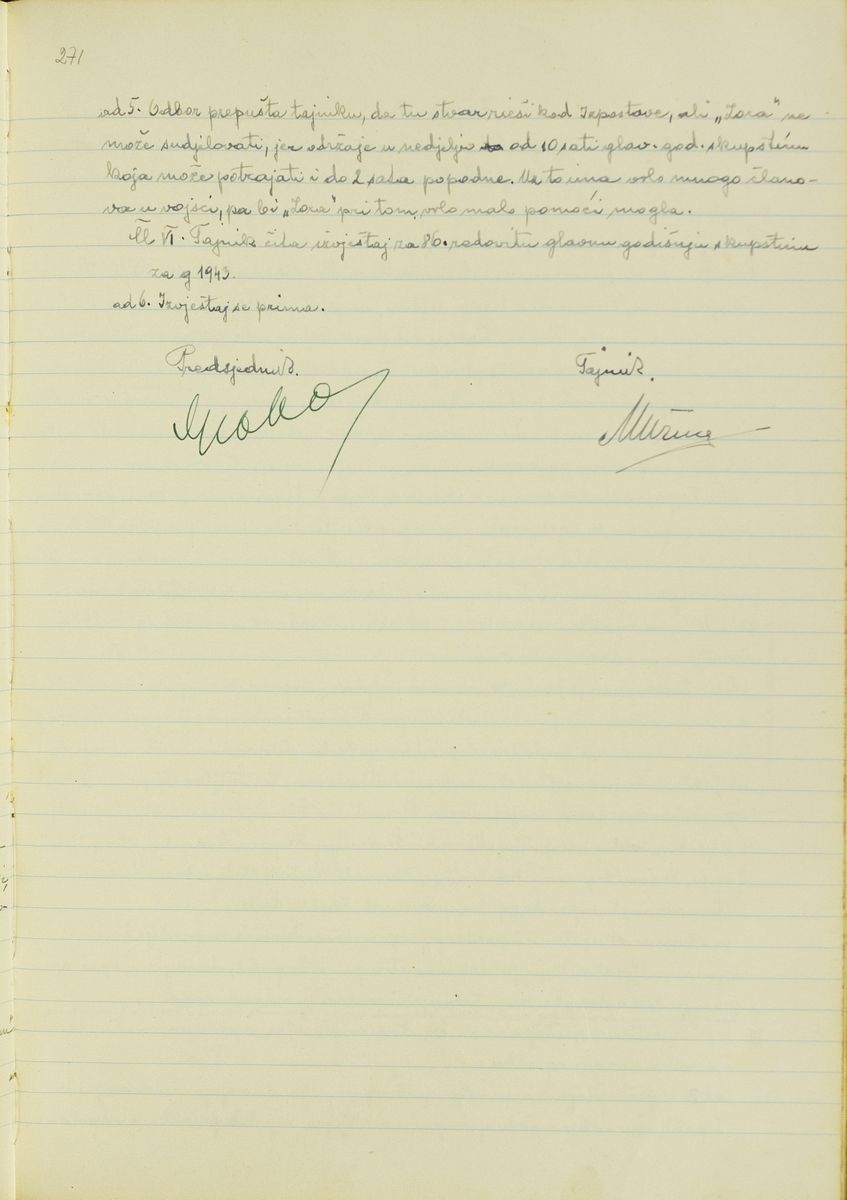 271
ad 5. Odbor prepušta tajniku, da tu stvar rieši kod Ispostave, ali „Zora" ne
može sudjelovati, jer održaje u nedjelju od 10 sati glav. god. skupštinu
koja može potrajati i do 2 sata popodne. Uz to ima vrlo mnogo člano-
va u vojsci, pa bi „Zora" pri tom vrlo malo pomoći mogla.
Čl. VI. Tajnik čita izvještaj za 86. redovitu glavnu godišnju skupštinu
za g 1943.
ad 6. Izvještaj se prima.
Predsjednik. Tajnik.